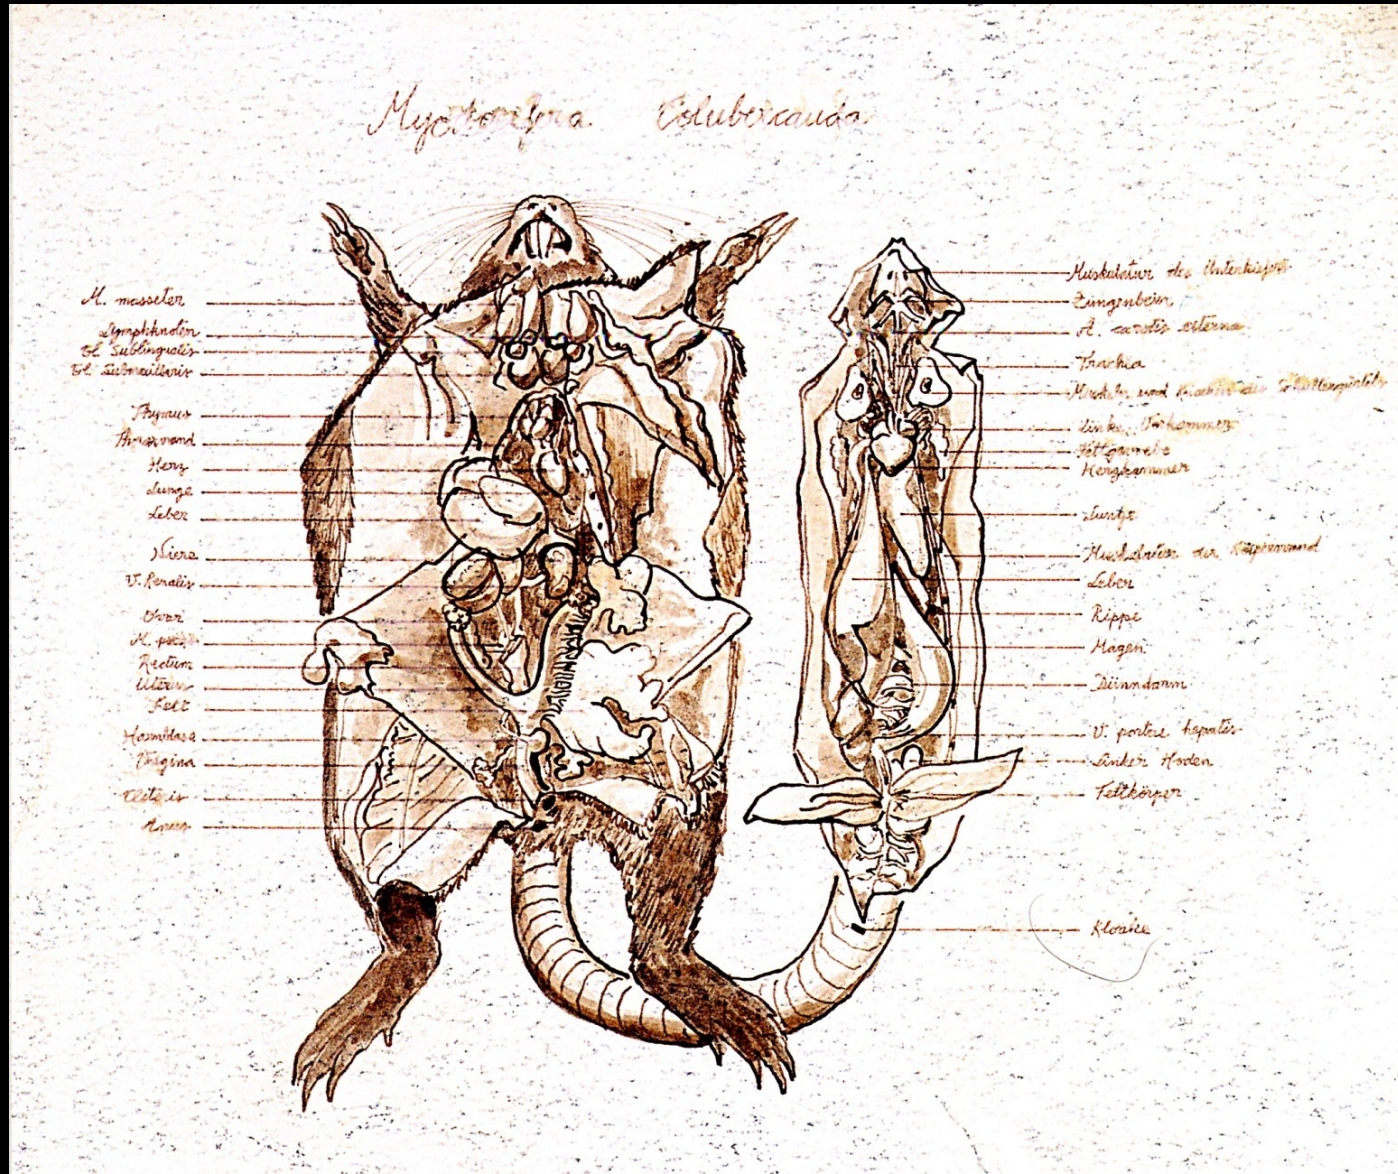 Colubercauda
M. masseter
Lymphknoten
Gl. Sublingualis
Gl. Submaxillaris
Thymus
Thoraxwand
Herz
Lunge
Leber
Niere
V. Renalis
Ovar
M.
Rectum
Uterus
Fett
Harnblase
Vagina
Clitoris
Anus
Muskulatur des Unterkiefers
Zungenbein
A. carotis externa
Trachea
Muskeln und Knochen des Schultergürtels
Linke Vorkammer
Fettgewebe
Herzkammer
Lunge
Muskulatur der Körperwand
Leber
Rippe
Magen
Dünndarm
V. portae hepatis
Linker Hoden
Fettkörper
Kloake